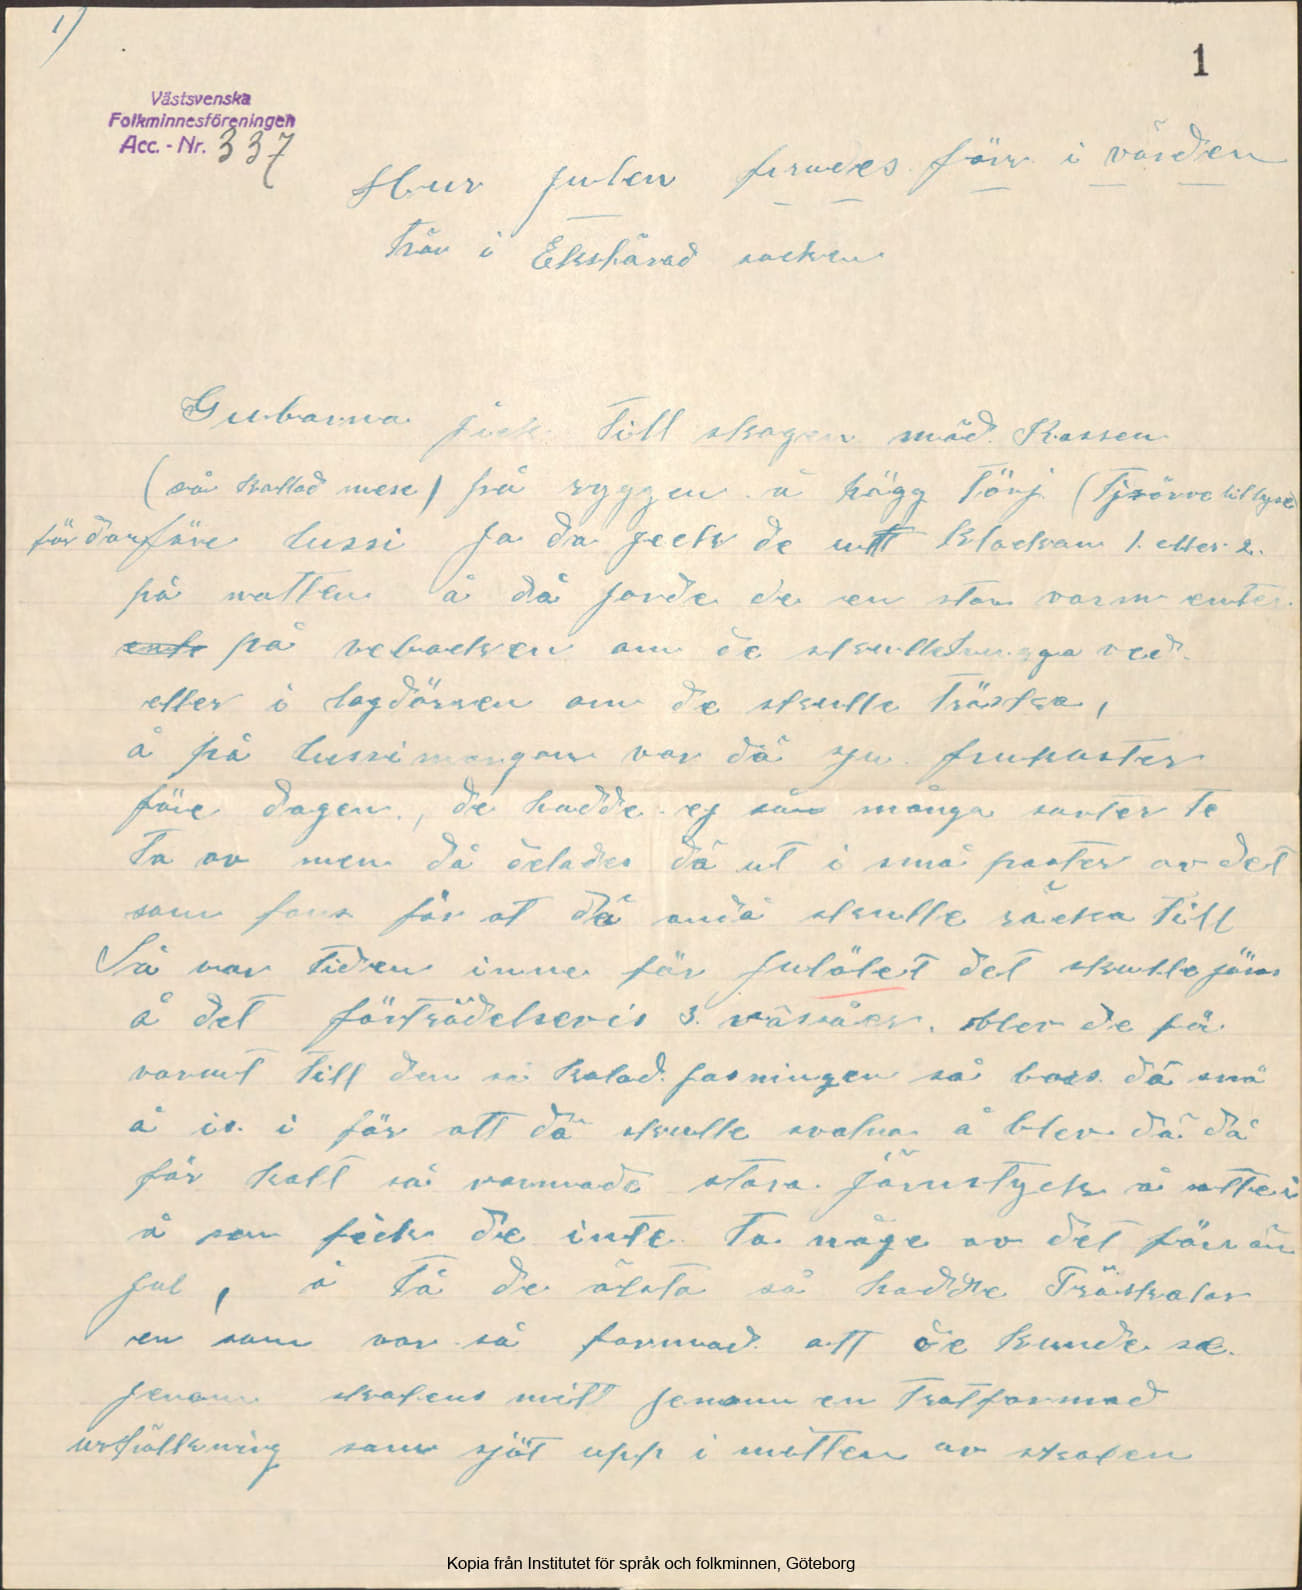 1)
1
Västsvenska
Folkminnesföreningen
Acc. - Nr. 337
Hur julen firades förr i världen
från i Ekshärad socken
Gubarna jick till skogen mäd Kassen
(så kallad mese) på ryggen å högg törj (Tjsörve till lyse
för dan före lussi ja da jeck de utt klockan 1. eller 2.
på natten å då jorde de en stor varm
på vebacken om de skulle hugga ved
eller i logdörren om de skulle tröska,
å på lussimorgon var dä sju frukoster
före dagen, de hadde ej så många sorter te
ta av men då delades dä ut i små poster av det
som fans för at dä ändå skulle räcka till
Så var tiden inne för julölet det skulle jöras
å det företrädelsevis 3. blev de för
varmt till den så kalad jäsningen så bars dä snö
å is i för att dä skulle svalna å blev dä då
för kalt så varmade stora järnstyck å satte i
å sen fick de inte ta någe av det förr än
jul, å tå de älsta så hadde Träskålar
en som var så formad att de kunde se
jenom skålens mitt jenom en tratformad
urhålkning som sjöt upp i mitten av skålen
Kopia från Institutet för språk och folkminnen, Göteborg